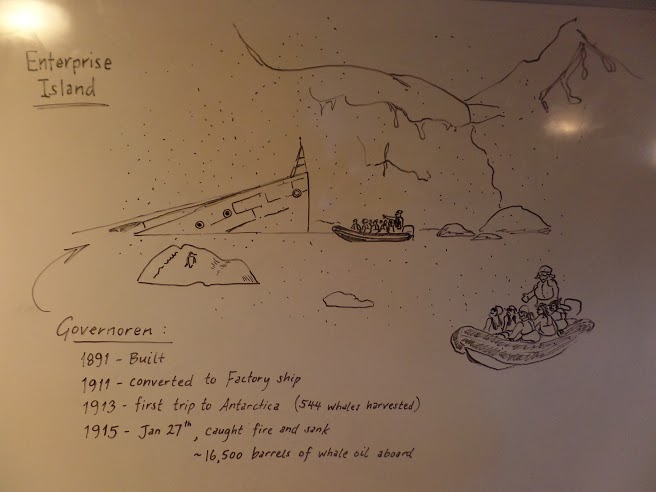 Enterprise
Island
Governoren:
1891 - Built
1911 - converted to Factory ship
1913 - first trip to Antarctica (544 whales harvested)
1915 - Jan 27th, caught fire and sank
~16,500 barrels of whale oil aboard